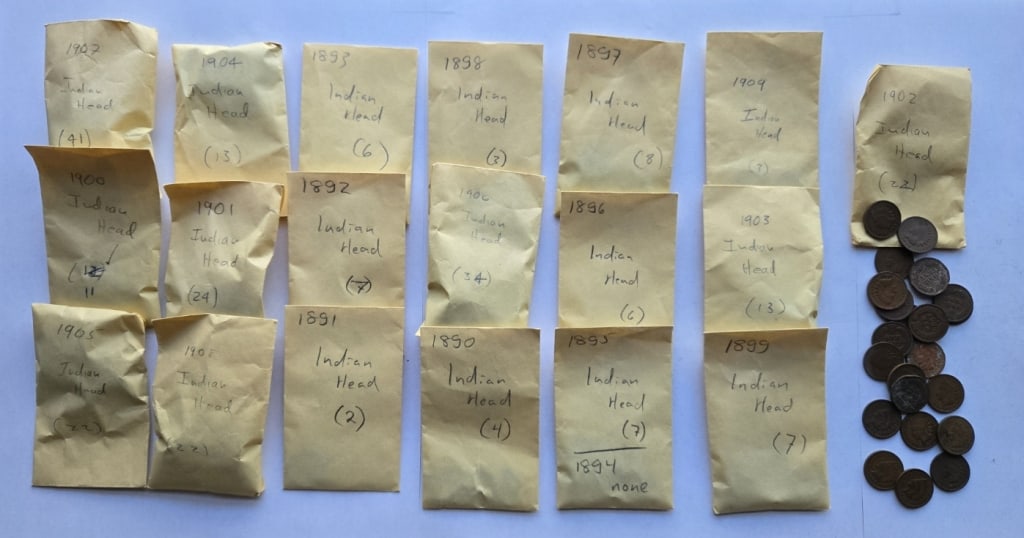 1907
Indian
Head
(41)
1904
Indian
Head
(13)
1893
Indian
Head
(6)
1898
Indian
Head
(3)
1897
Indian
Head
(8)
1909
Indian
Head
1902
Indian
Head
(22)
1900
Indian
Head
11
1901
Indian
Head
(24)
1892
Indian
Head
(7)
Indian
Head
(34)
1896
Indian
Head
(6)
1903
Indian
Head
(13)
1905
Indian
Head
(22)
Indian
Head
1891
Indian
Head
(2)
1890
Indian
Head
(4)
1895
Indian
Head
(7)
1894
none
1899
Indian
Head
(7)